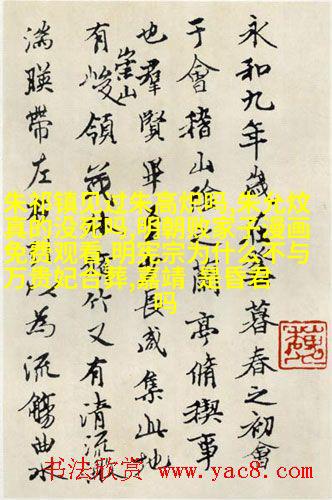 永和九年歲在癸暮春之初會
于會稽山陰之蘭亭脩稧事
也羣賢畢長咸集此地
有崇山峻領茂林竹又有清流激
湍暎帶左為流觴曲水
朱祁镇见过朱高炽吗,朱允炆
真的没死吗,明朝败家子漫画
免费观看,明宪宗为什么不与
万贵妃合葬,嘉靖 是昏君
吗
书法欣赏 www.yac8.com